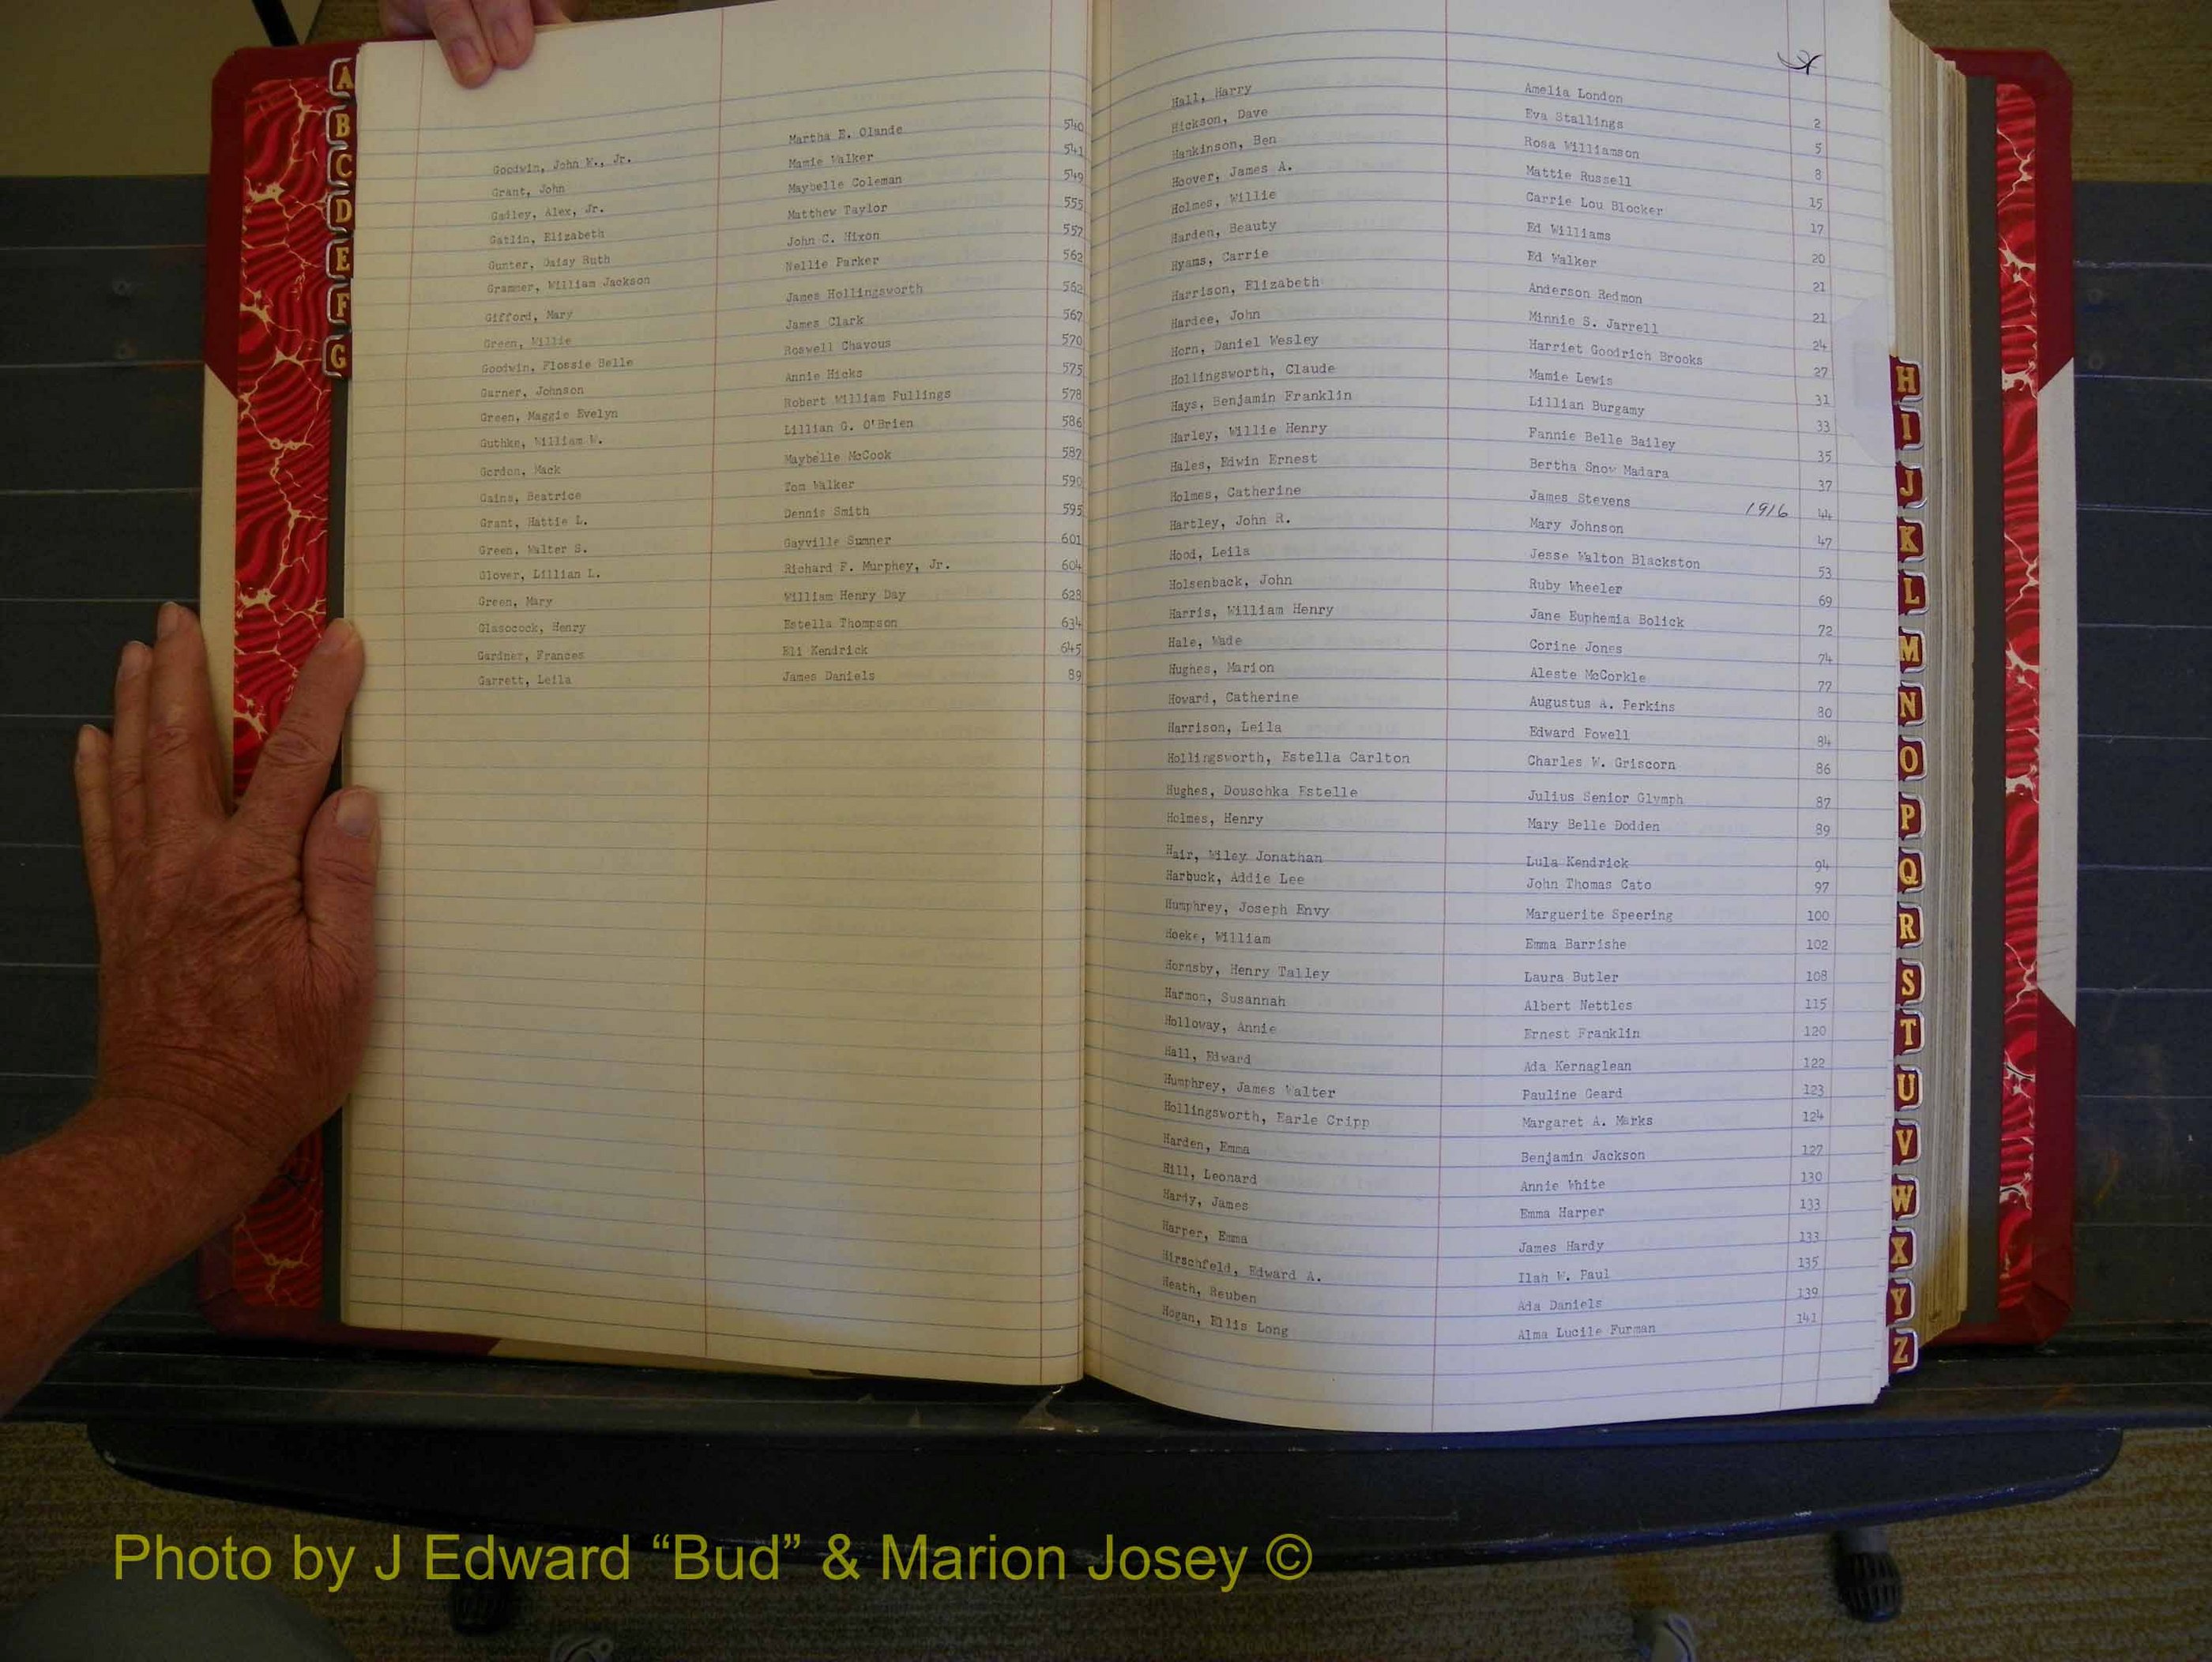 A
B
C
D
E
F
G
Goodwin, John W., Jr. Martha E. Olande 540
Grant, John Mamie Walker 541
Gadley, Alex, Jr. Maybelle Coleman 549
Gatlin, Elizabeth Matthew Taylor 555
Gunter, Daisy Ruth John C. Hixon 557
Grammer, William Jackson Nellie Parker 562
Gifford, Mary James Hollingsworth 562
Green, Willie James Clark 567
Goodwin, Flossie Belle Roswell Chavous 570
Garner, Johnson Annie Hicks 575
Green, Maggie Evelyn Robert William Pullings 578
Guthke, William W. Lillian G. O'Brien 586
Gordon, Mack Maybelle McCook 587
Gains, Beatrice Tom Walker 590
Grant, Hattie L. Dennis Smith 595
Green, Walter S. Gayville Sumner 601
Glover, Lillian L. Richard F. Murphey, Jr. 604
Green, Mary William Henry Day 628
Glasocock, Henry Estella Thompson 634
Gardner, Frances Eli Kendrick 645
Garrett, Leila James Daniels 89
Hall, Harry Amelia London 2
Hickson, Dave Eva Stallings 5
Hankinson, Ben Rosa Williamson 8
Hoover, James A. Mattie Russell 15
Holmes, Willie Carrie Lou Blocker 17
Harden, Beauty Ed Williams 20
Hyams, Carrie Ed Walker 21
Harrison, Elizabeth Anderson Redmon 21
Hardee, John Minnie S. Jarrell 24
Horn, Daniel Wesley Harriet Goodrich Brooks 27
Hollingsworth, Claude Mamie Lewis 31
Hays, Benjamin Franklin Lillian Burgamy 33
Harley, Willie Henry Fannie Belle Bailey 35
Hales, Edwin Ernest Bertha Snow Madara 37
Holmes, Catherine James Stevens 1916 44
Hartley, John R. Mary Johnson 47
Hood, Leila Jesse Walton Blackston 53
Holsenback, John Ruby Wheeler 69
Harris, William Henry Jane Euphemia Bolick 72
Hale, Wade Corine Jones 74
Hughes, Marion Aleste McCorkle 77
Howard, Catherine Augustus A. Perkins 80
Harrison, Leila Edward Powell 84
Hollingsworth, Estella Carlton Charles W. Griscorn 86
Hughes, Douschka Estelle Julius Senior Glymph 87
Holmes, Henry Mary Belle Dodden 89
Hair, Wiley Jonathan Lula Kendrick 94
Harbuck, Addie Lee John Thomas Cato 97
Humphrey, Joseph Envy Marguerite Speering 100
Hoeke, William Emma Barrishe 102
Hornsby, Henry Talley Laura Butler 108
Harmon, Susannah Albert Nettles 115
Holloway, Annie Ernest Franklin 120
Hall, Edward Ada Kernaglean 122
Humphrey, James Walter Pauline Geard 123
Hollingsworth, Earle Cripp Margaret A. Marks 124
Harden, Emma Benjamin Jackson 127
Hill, Leonard Annie White 130
Hardy, James Emma Harper 133
Harper, Emma James Hardy 133
Hirschfeld, Edward A. Ilah W. Paul 135
Heath, Reuben Ada Daniels 139
Hogan, Ellis Long Alma Lucile Furman 141
H
I
J
K
L
M
N
O
P
Q
R
S
T
U
V
W
X
Y
Z
Photo by J Edward “Bud” & Marion Josey ©